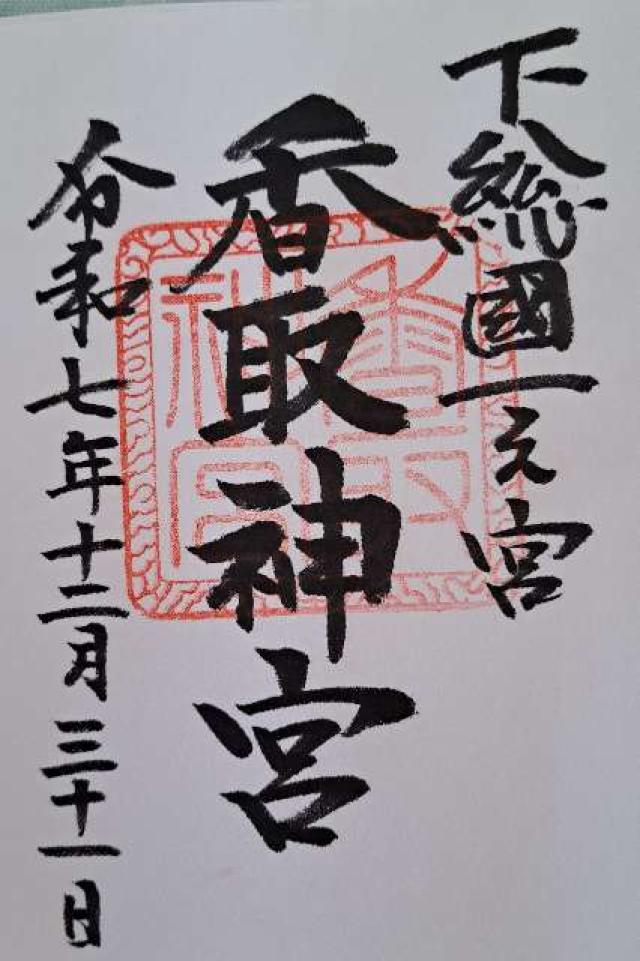 下総國一之宮
香取神宮
令和七年十二月三十一日
香取神宮